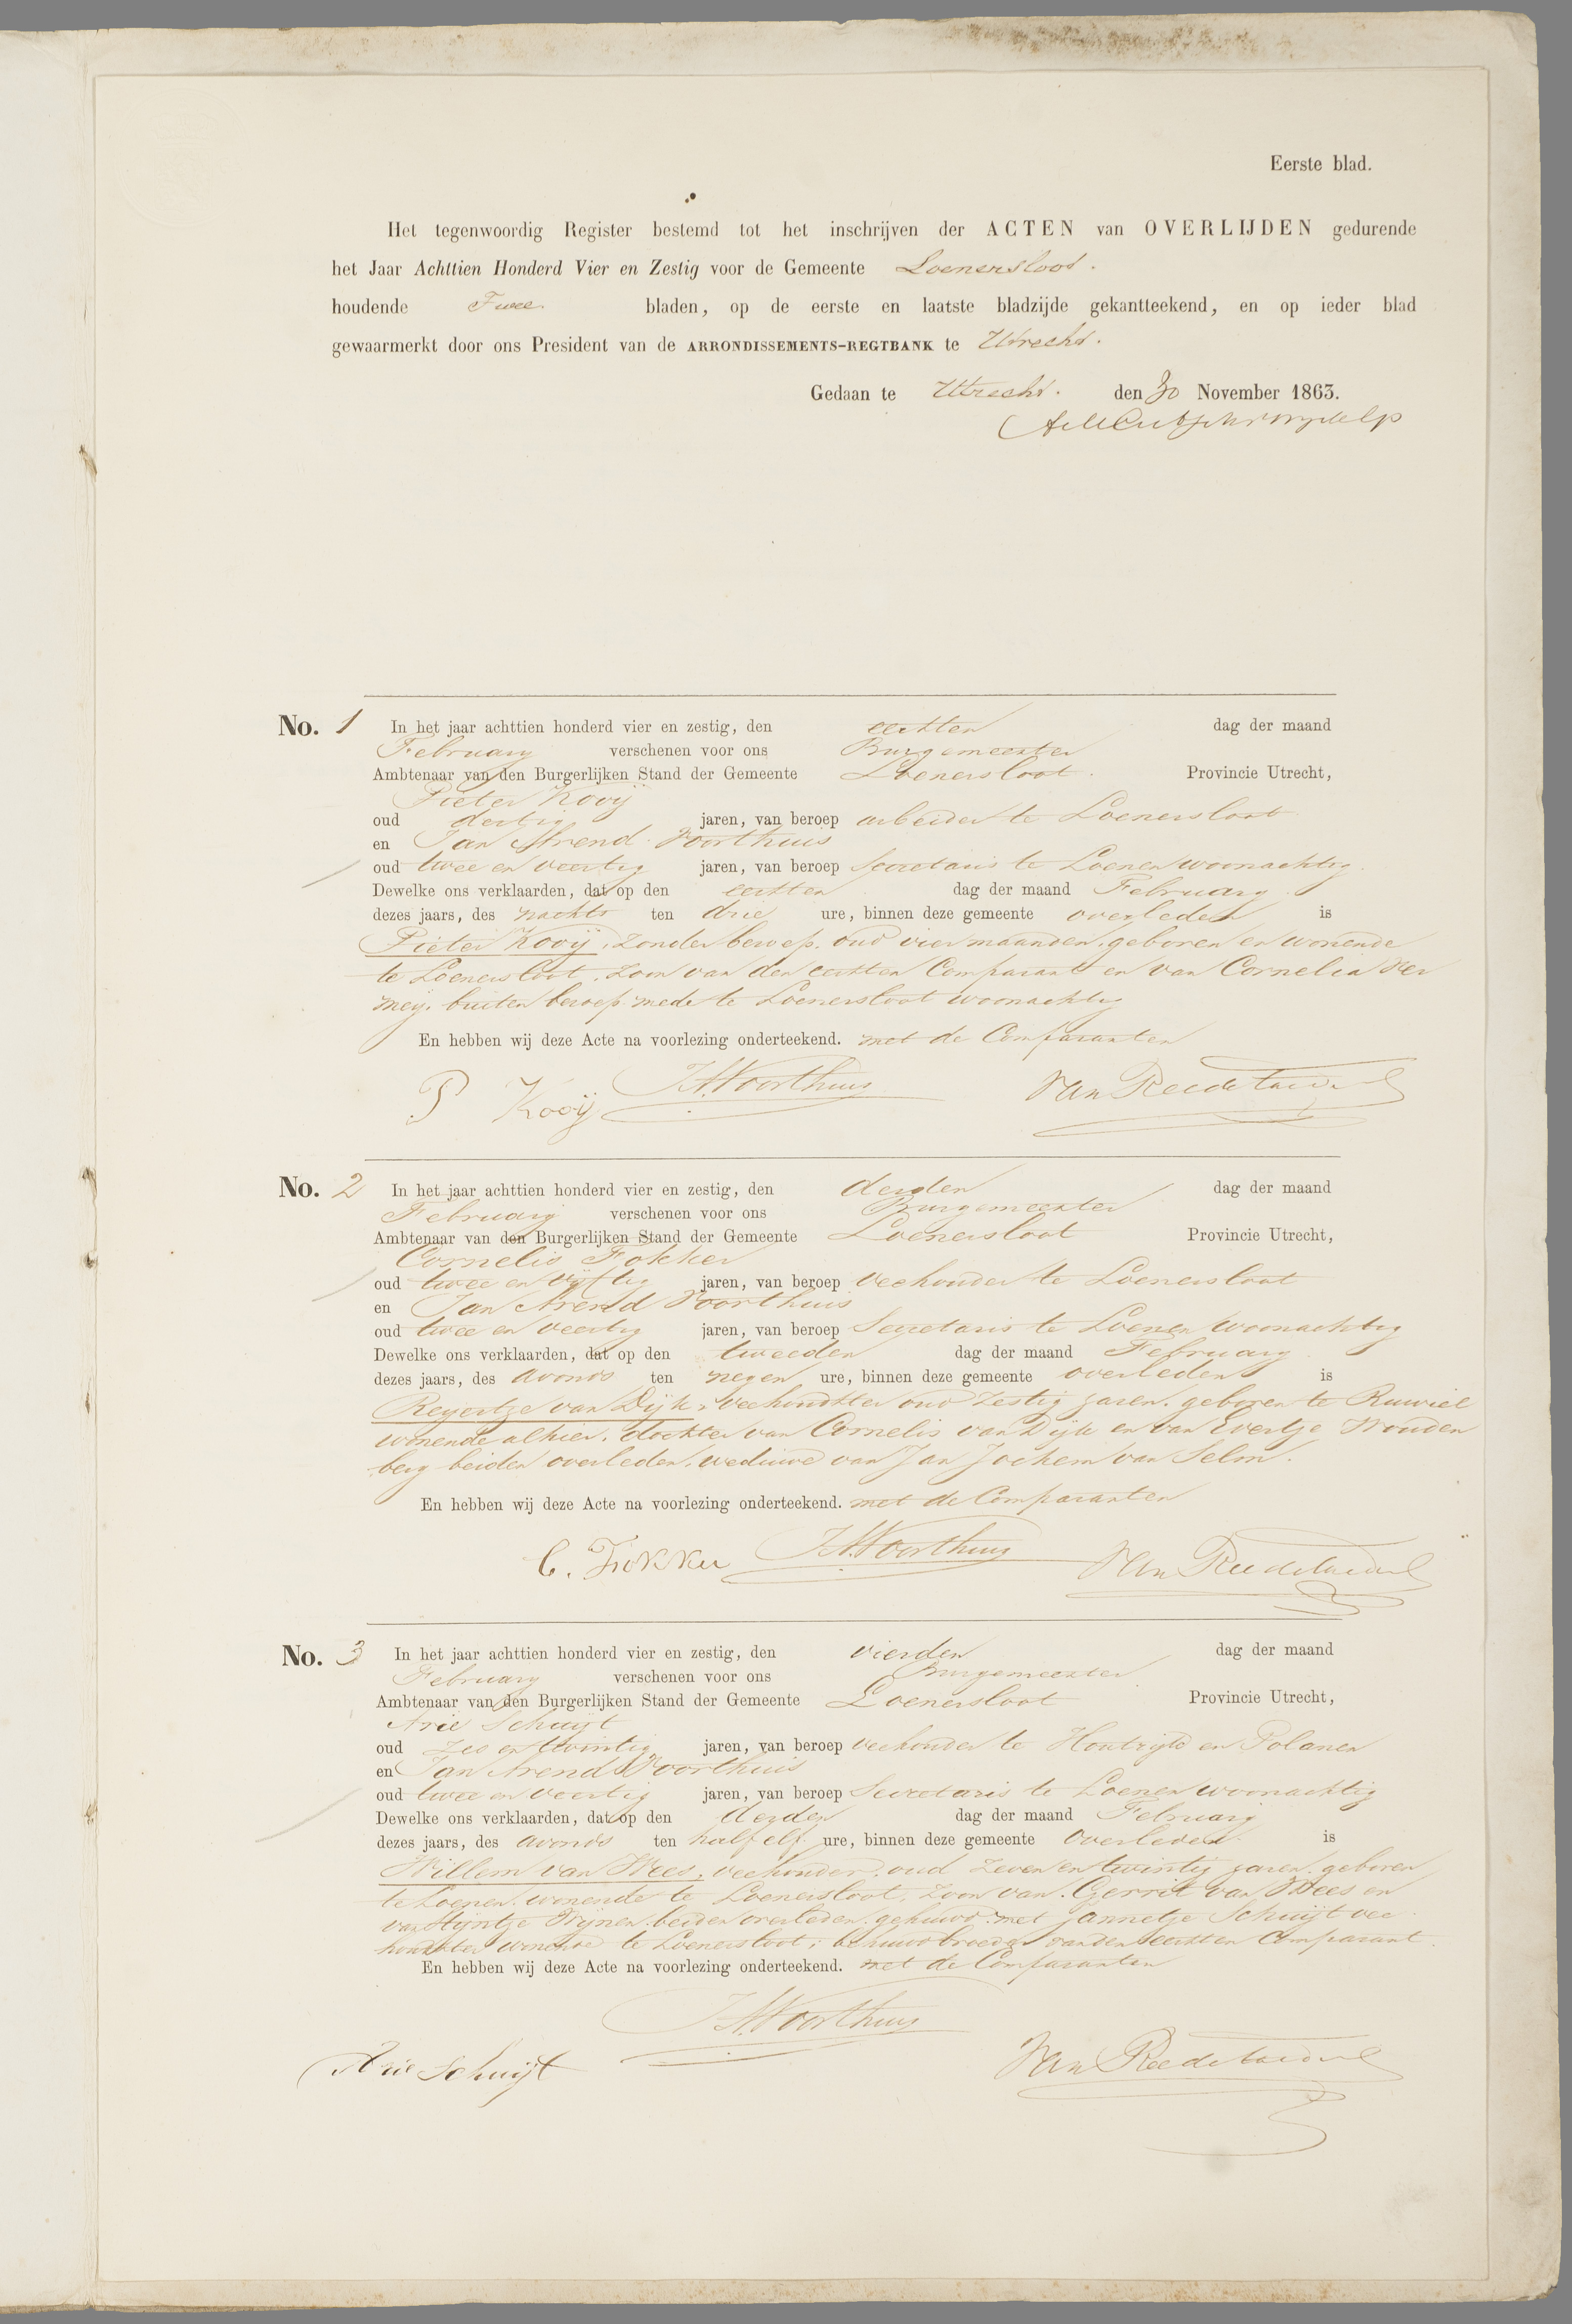 Eerste blad.
Het tegenwoordig Register bestemd tot het inschrijven der ACTEN van OVERLIJDEN gedurende
het Jaar Achttien Honderd Vier en Zestig voor de Gemeente Loenersloot.
houdende Twee bladen, op de eerste en laatste bladzijde gekantteekend, en op ieder blad
gewaarmerkt door ons President van de ARRONDISSEMENTS-REGTBANK te Utrecht.
Gedaan te Utrecht. den 30 November 1863.
No. 1 In het jaar achttien honderd vier en zestig, den eersten dag der maand
February verschenen voor ons Burgemeester
Ambtenaar van den Burgerlijken Stand der Gemeente Loenersloot. Provincie Utrecht,
Pieter Kooij
oud dertig jaren, van beroep arbeider te Loenersloot
en Jan Arend Voorthuis
oud twee en veertig jaren, van beroep Secretaris te Loenen woonachtig.
Dewelke ons verklaarden, dat op den eersten dag der maand February
dezes jaars, des nachts ten drie ure, binnen deze gemeente overleden is
Pieter Kooij, zonder beroep, oud vier maanden, geboren en wonende
te Loenersloot, Zoon van den eersten Comparant en van Cornelia Ver
meij, buiten beroep mede te Loenersloot woonachtig
En hebben wij deze Acte na voorlezing onderteekend. met de Comparanten
P Kooij JAVoorthuis Van Reede
No. 2 In het jaar achttien honderd vier en zestig, den derden dag der maand
February verschenen voor ons Burgemeester
Ambtenaar van den Burgerlijken Stand der Gemeente Loenersloot Provincie Utrecht,
Cornelis Fokker
oud twee en vijftig jaren, van beroep Veehouder te Loenersloot
en Jan Arend Voorthuis
oud twee en veertig jaren, van beroep Secretaris te Loenen Woonachtig
Dewelke ons verklaarden, dat op den tweeden dag der maand February
dezes jaars, des avonds ten negen ure, binnen deze gemeente overleden is
Reyertje van Dijk, veehoudster oud Zestig jaren, geboren te Ruwiel
wonende alhier, dochter van Cornelis van Dijk en van Evertje Wouden
berg beiden overleden, weduwe van Jan Jochem van Selm.
En hebben wij deze Acte na voorlezing onderteekend. met de Comparanten
C. Fokker JAVoorthuis Van Reede
No. 3 In het jaar achttien honderd vier en zestig, den vierden dag der maand
February verschenen voor ons Burgemeester
Ambtenaar van den Burgerlijken Stand der Gemeente Loenersloot Provincie Utrecht,
Arie Schuijt
oud Zes en twintig jaren, van beroep Veehouder te Houtrijk en Polanen
en Jan Arend Voorthuis
oud twee en veertig jaren, van beroep Secretaris te Loenen woonachtig
Dewelke ons verklaarden, dat op den derden dag der maand February
dezes jaars, des avonds ten half elf ure, binnen deze gemeente overleden is
Willem van Wees, veehouder, oud zeven en twintig jaren, geboren
te Loenen, wonende te Loenersloot, Zoon van Gerrit van Wees en
van Wijntje Wijnen, beiden overleden, gehuwd met Jannetje Schuijt vee
houdster wonende te Loenersloot; behuwdbroeder van den eersten Comparant.
En hebben wij deze Acte na voorlezing onderteekend. met de Comparanten
Arie Schuijt JAVoorthuis Van Reede